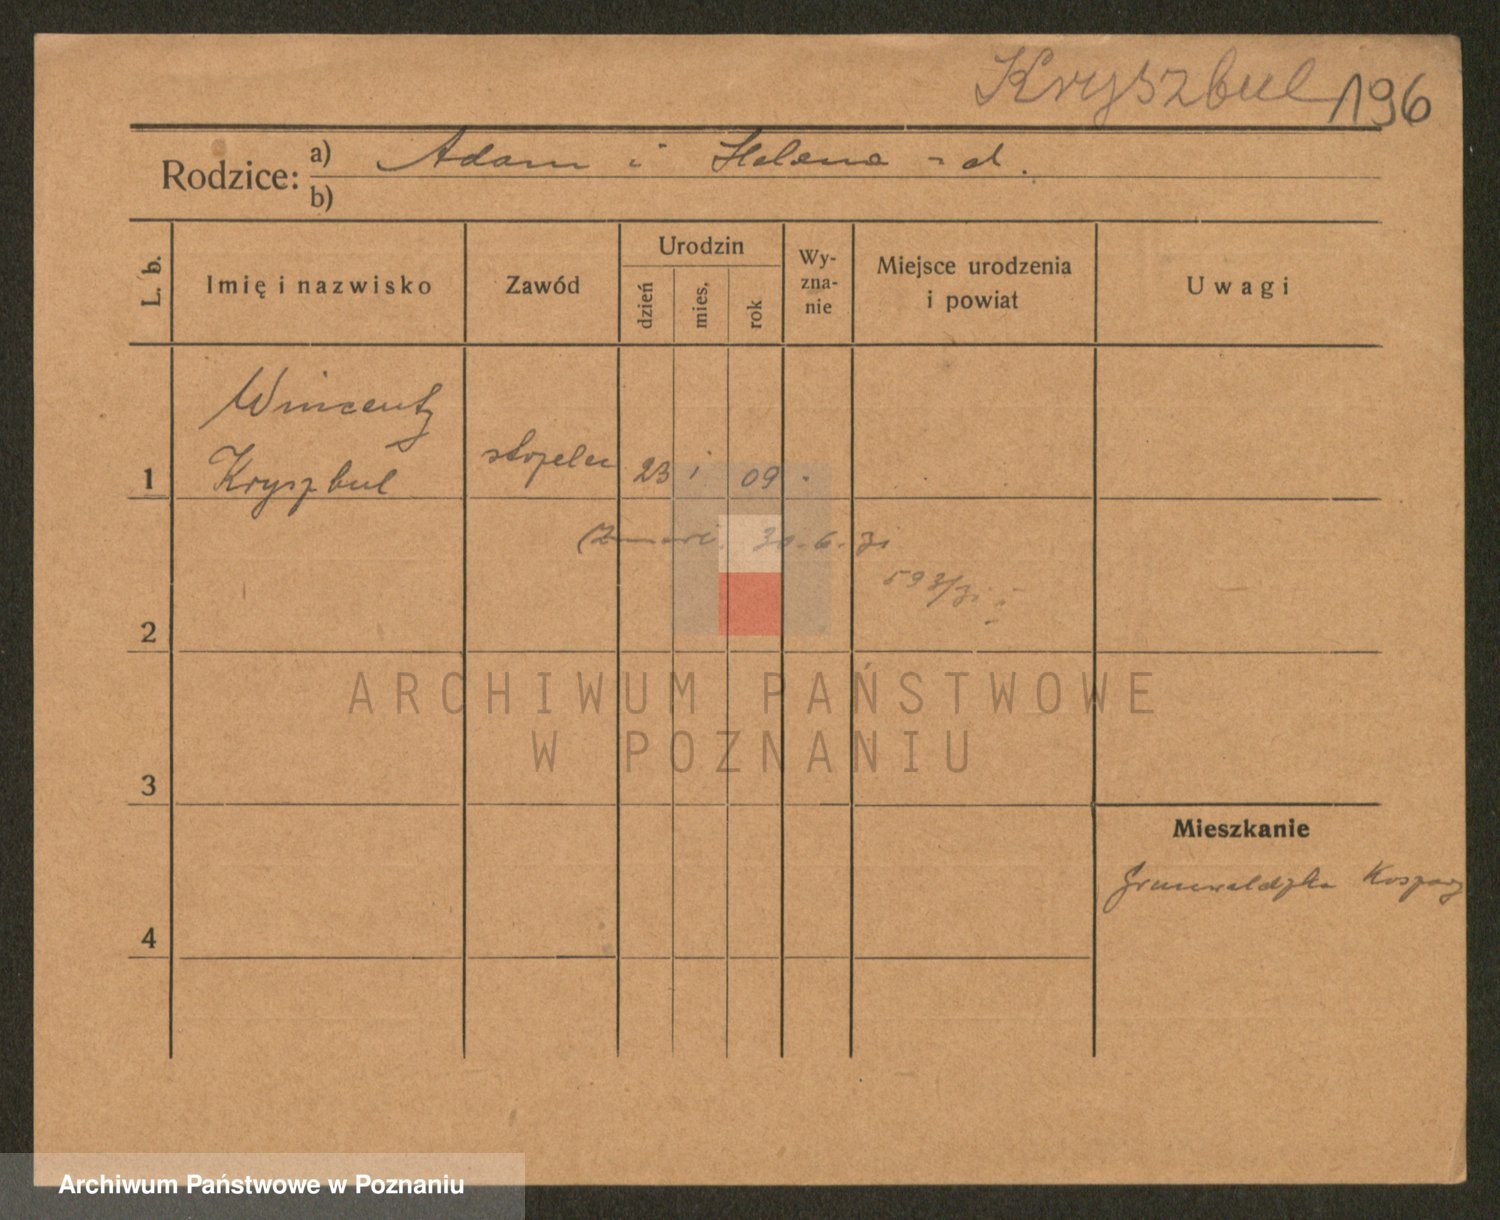 Kryszbul 196
Rodzice: a) Adam i Helena
b)
L. b.
Imię i nazwisko
Zawód
Urodzin
dzień
mies.
rok
Wy-
zna-
nie
Miejsce urodzenia
i powiat
Uwagi
Wincenty
1 Kryszbul strzelec 23 1 09
Zmarł 30.6.31
593/31
2
ARCHIWUM PAŃSTWOWE
W POZNANIU
3
Mieszkanie
Grunwaldzka Koszary
4
Archiwum Państwowe w Poznaniu